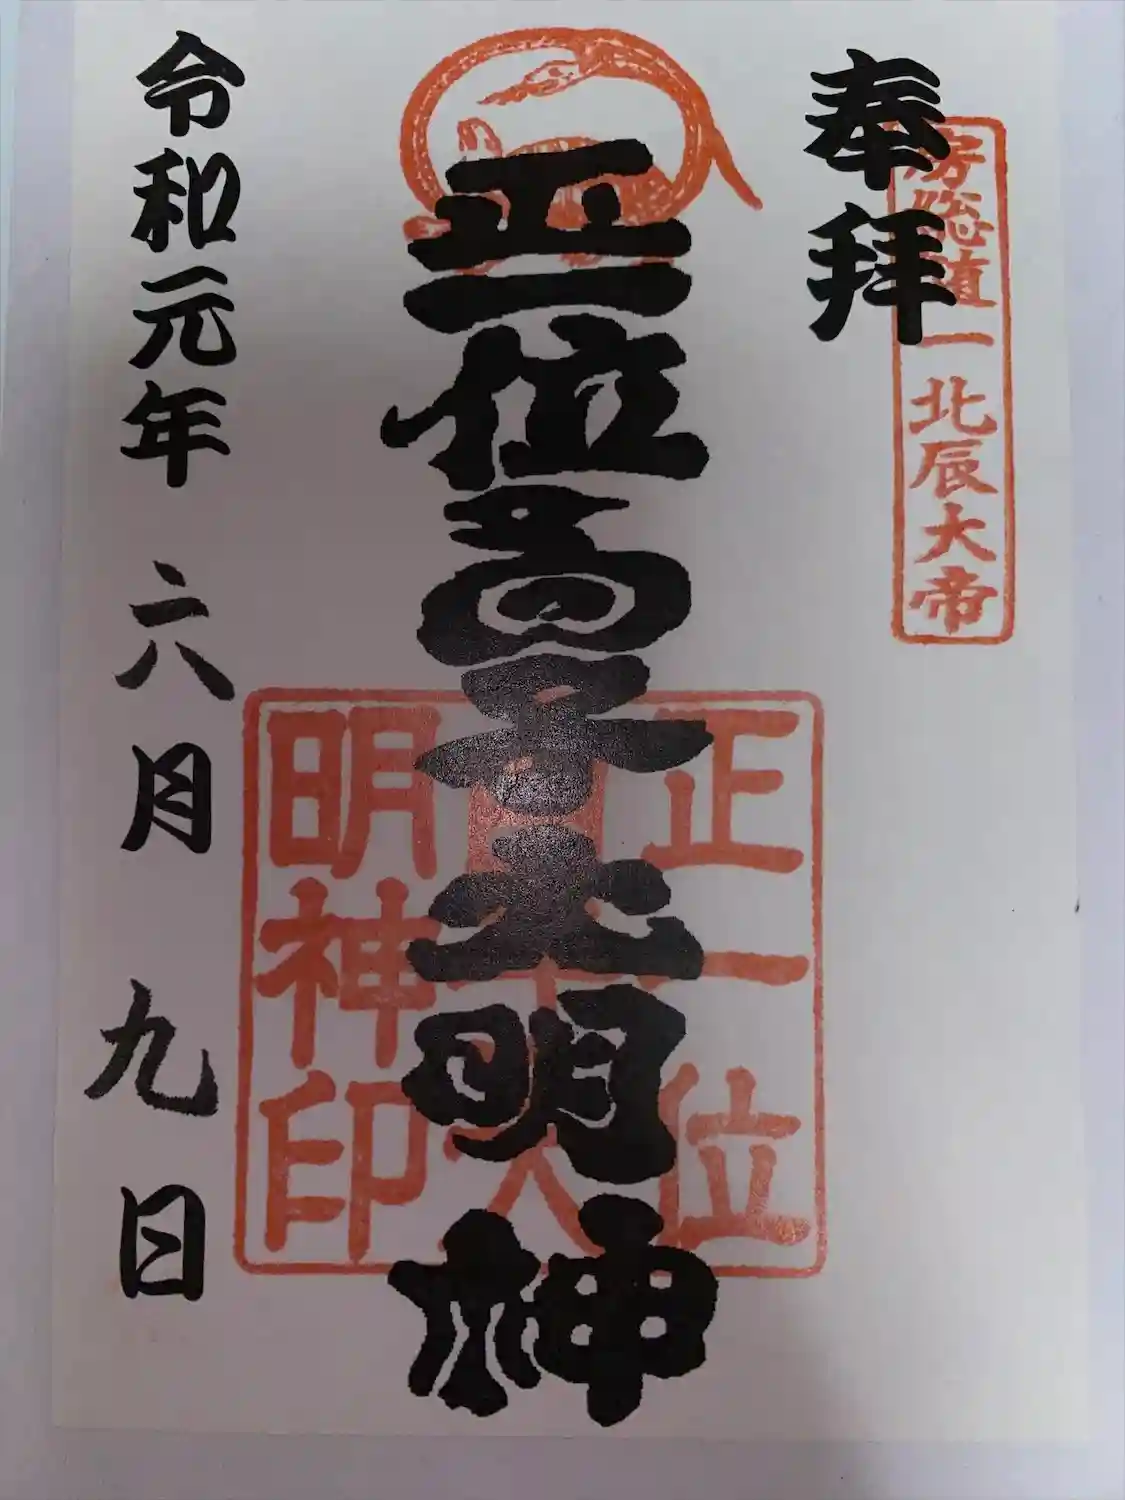 奉拝
房総道一北辰大帝
正一位高大明神
正一位
大
明神印
令和元年六月九日